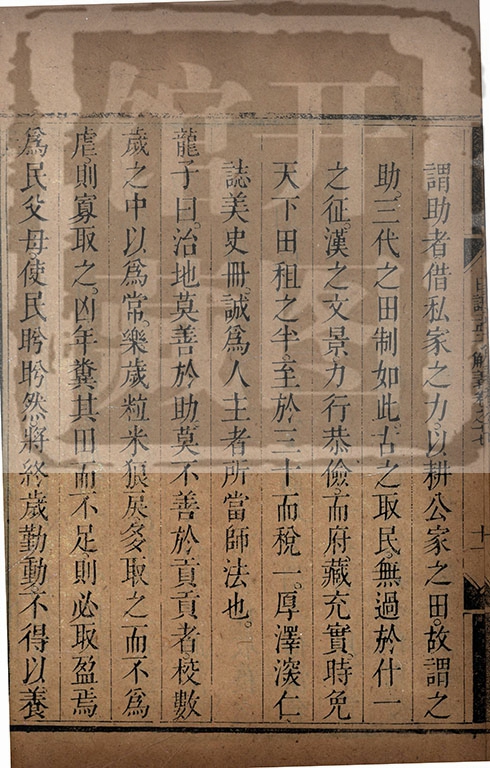 謂助者、借私家之力、以耕公家之田。故謂之
助。三代之田制如此。古之取民、無過於什一
之征。漢之文景、力行恭儉、而府藏充實、時免
天下田租之半、至於三十而稅一。厚澤深仁、
誌美史冊、誠爲人主者所當師法也。
龍子曰。治地莫善於助、莫不善於貢。貢者、校數
歲之中以爲常。樂歲粒米狼戾、多取之而不爲
虐、則寡取之。凶年糞其田而不足、則必取盈焉。
爲民父母、使民盻盻然、將終歲勤動、不得以養